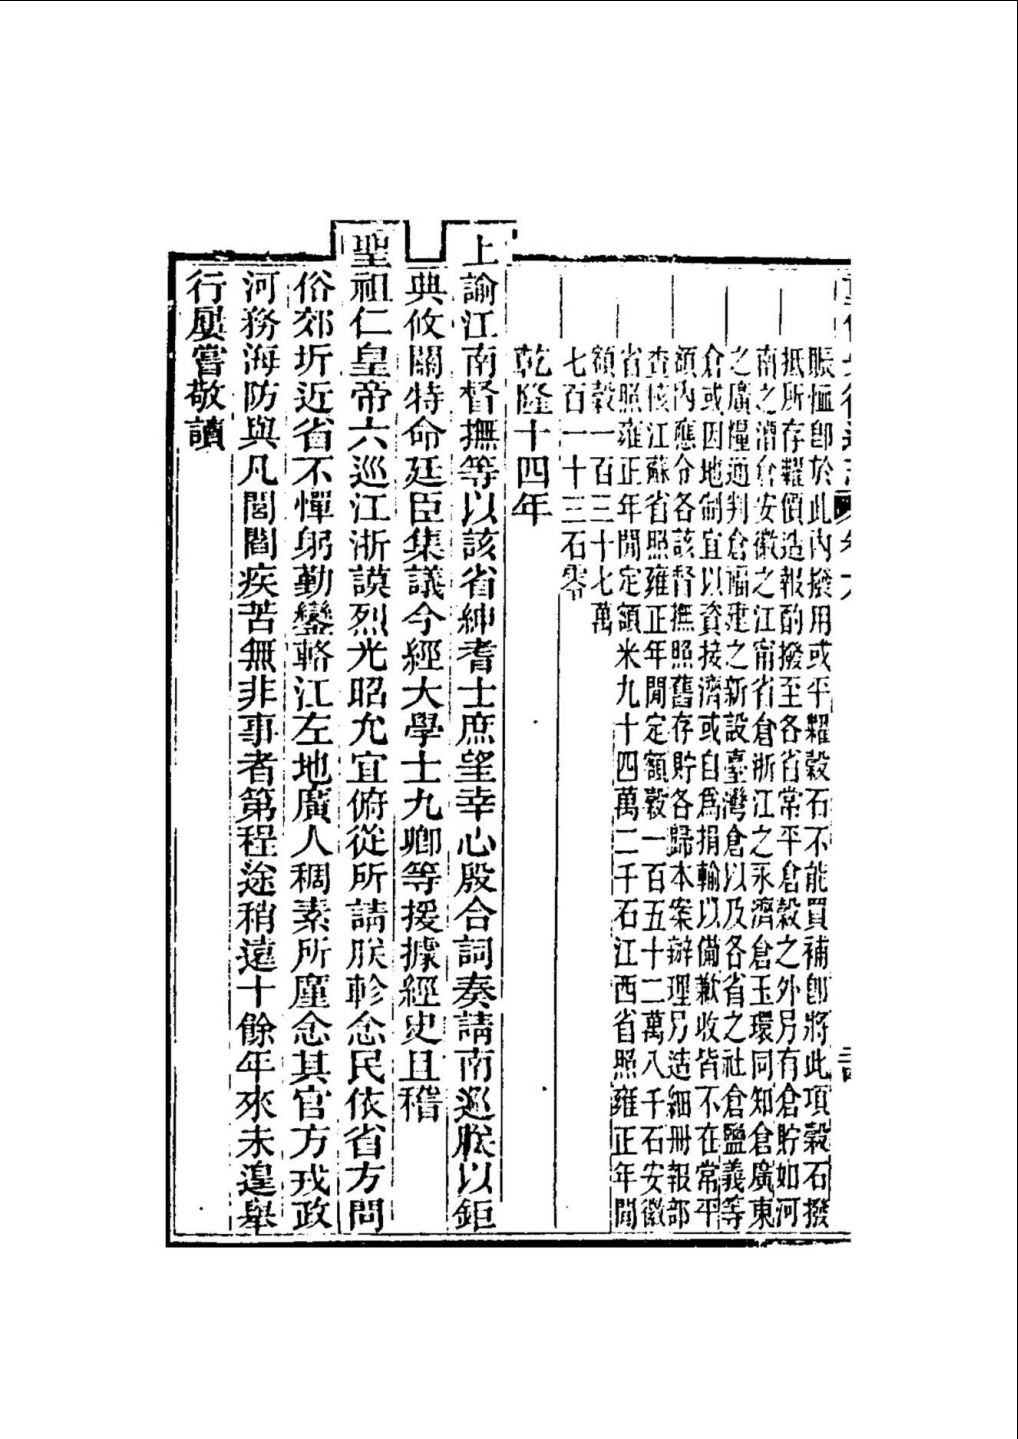 賑恤卽於此內撥用或平糶穀石不能買補卽將此項穀石撥
抵所存糶價造報酌撥至各省常平倉穀之外另有倉貯如河
南之漕倉安徽之江甯省倉浙江之永濟倉玉環同知倉廣東
之廣糧通判倉福建之新設臺灣倉以及各省之社倉鹽義等
倉或因地制宜以資接濟或自爲捐輸以備歉收皆不在常平
額內應分各該督撫照舊存貯各歸本案辦理另造細冊報部
查核江蘇省照雍正年閒定額穀一百五十二萬八千石安徽
省照雍正年閒定額米九十四萬二千石江西省照雍正年閒
額穀一百三十七萬
七百一十三石零
乾隆十四年
上諭江南督撫等以該省紳耆士庶望幸心殷合詞奏請南巡朕以鉅
典攸關特命廷臣集議今經大學士九卿等援據經史且稽
聖祖仁皇帝六巡江浙謨烈光昭允宜俯從所請朕軫念民依省方問
俗郊圻近省不憚躬勤鑾輅江左地廣人稠素所廑念其官方戎政
河務海防與凡閭閻疾苦無非事者第程途稍遠十餘年來未遑舉
行屢嘗敬讀